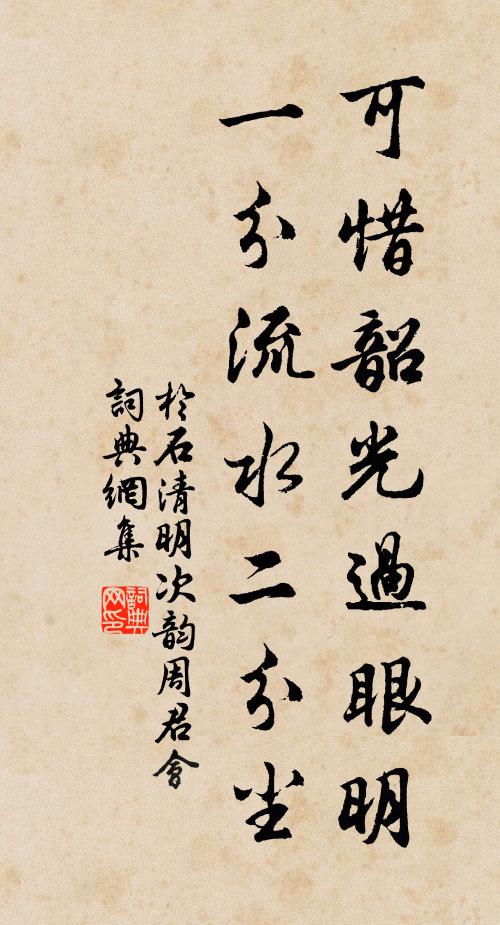 可惜韶光過眼明
一分流水二分尘
於石清明次韵周君會
詞典網集
詞典网印